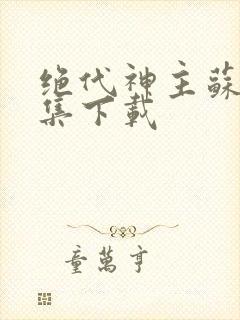 绝代神主蘇
集下载
童萬亨